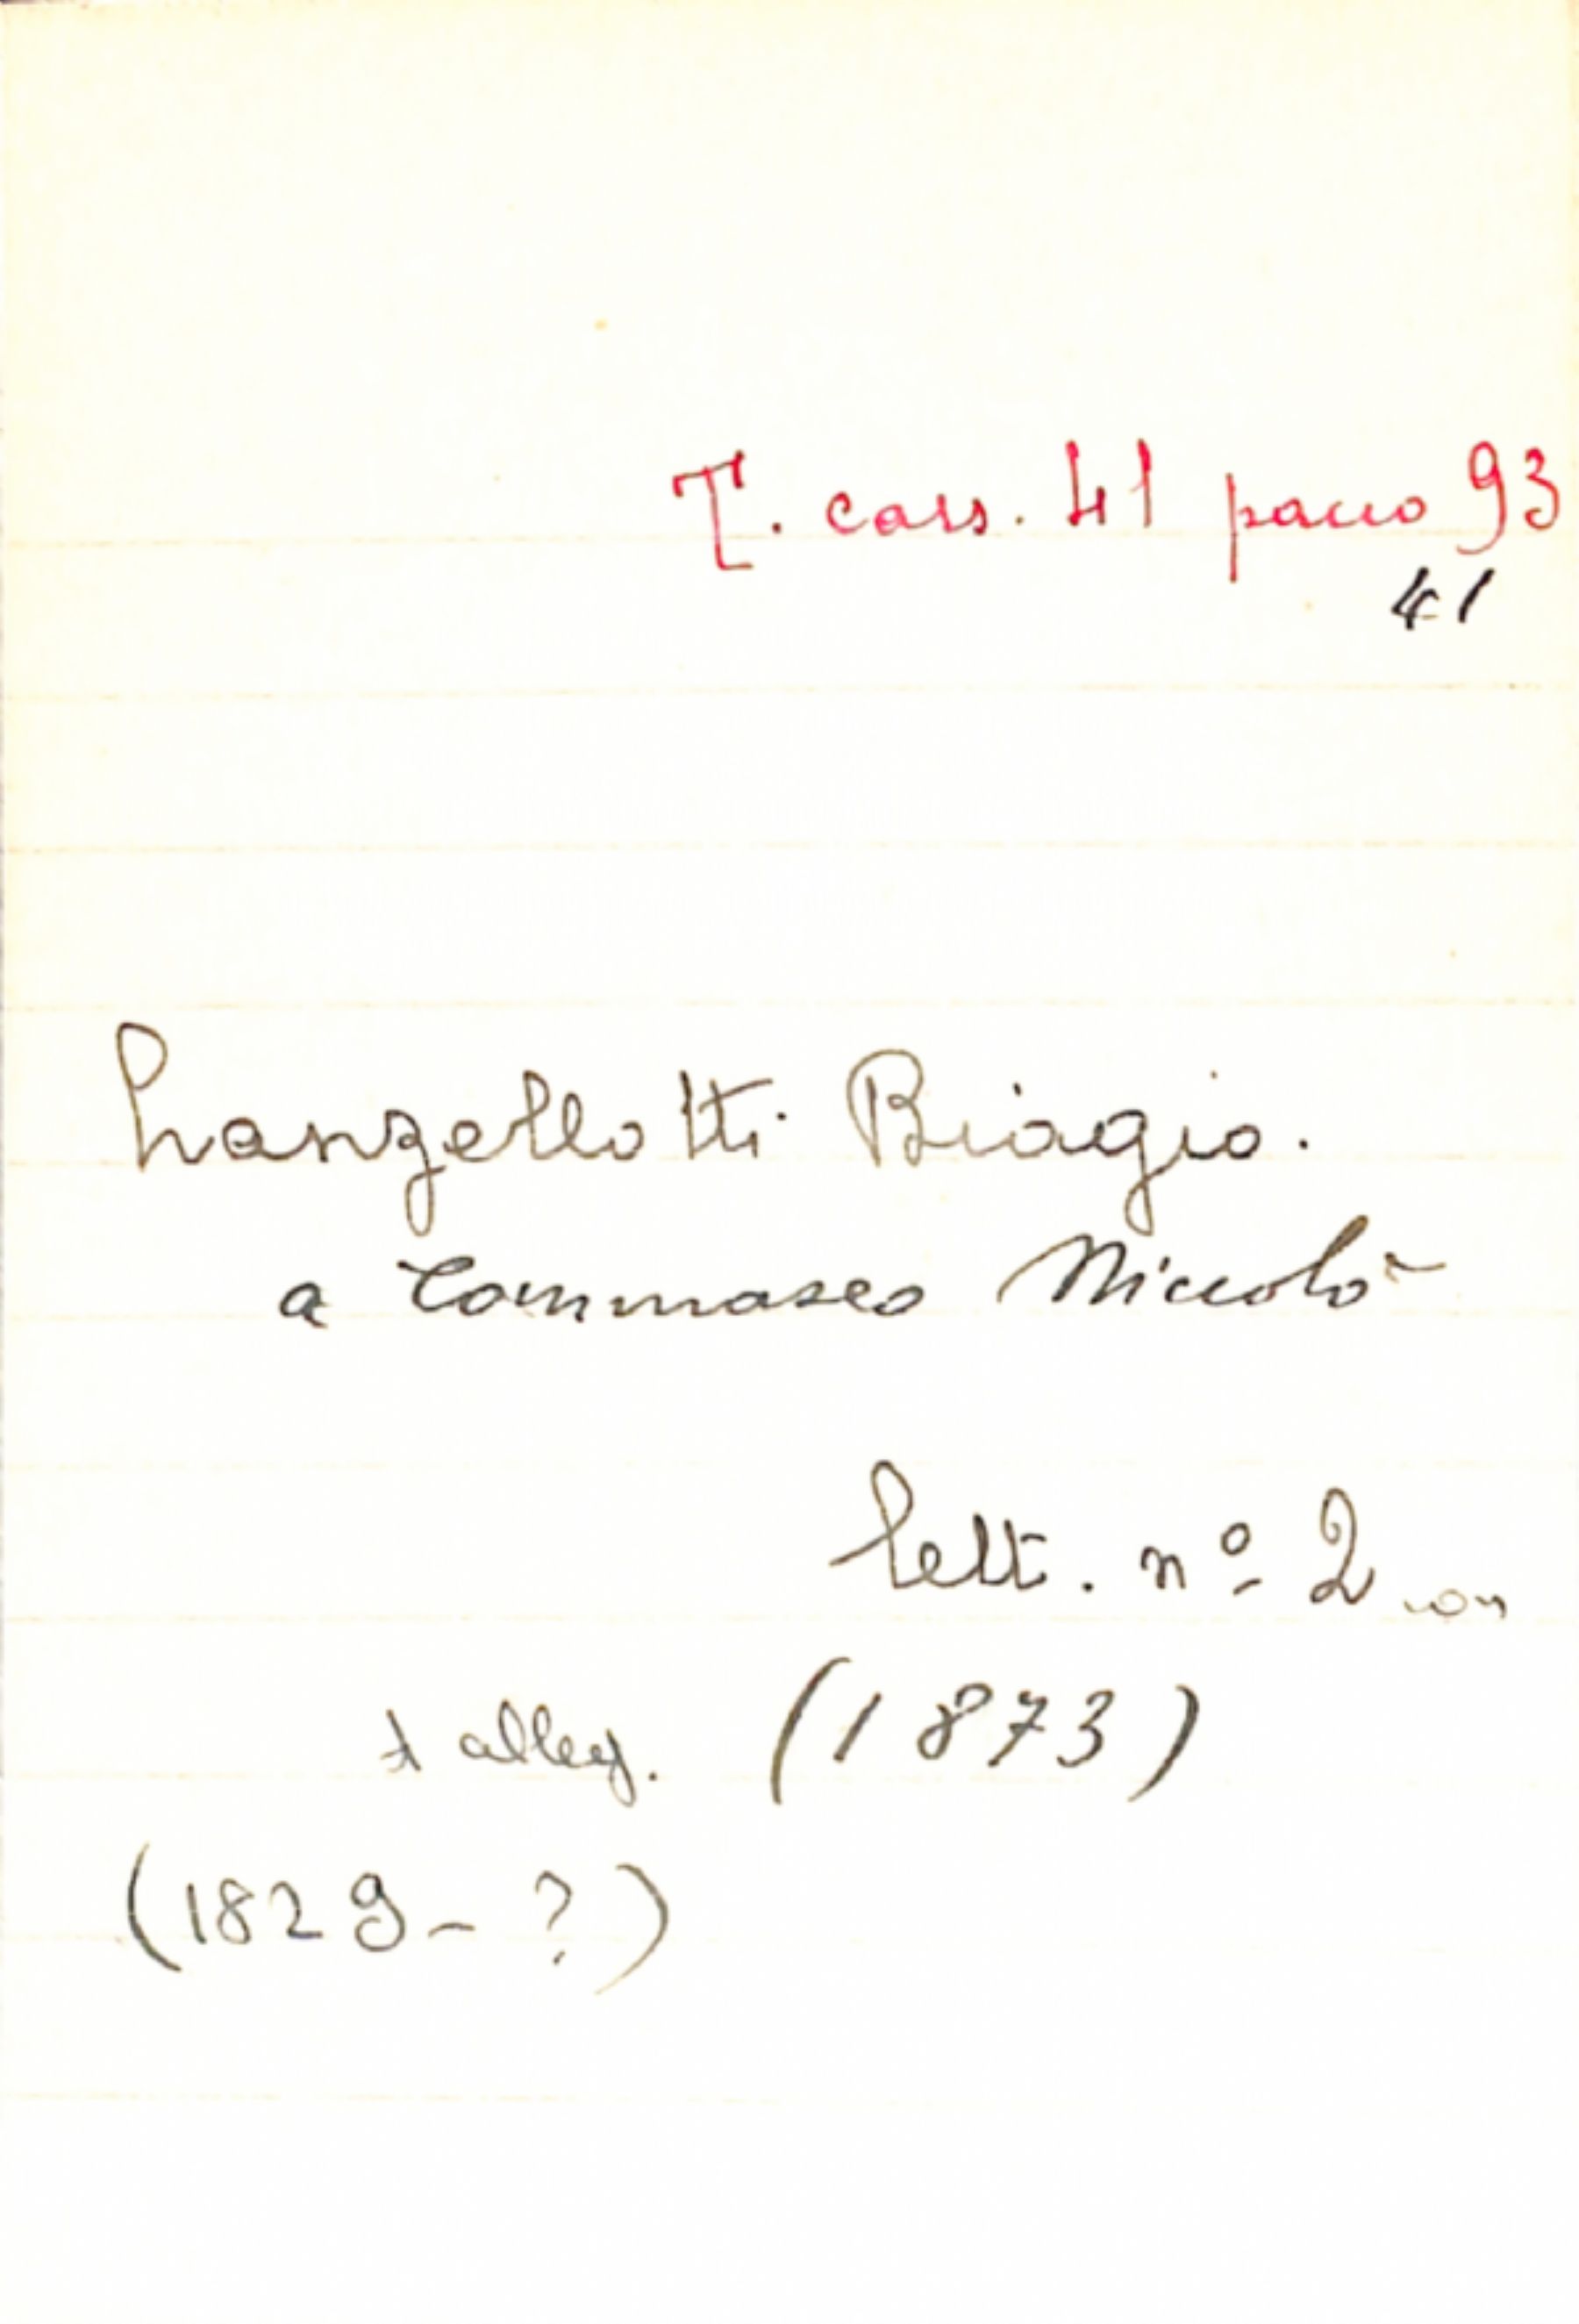 T. cass. 41 pacco 93
41
Lanzellotti Biagio.
a Tommaseo Niccolò
lett. nº 2 con
1 alleg. (1873)
(1829 - ?)